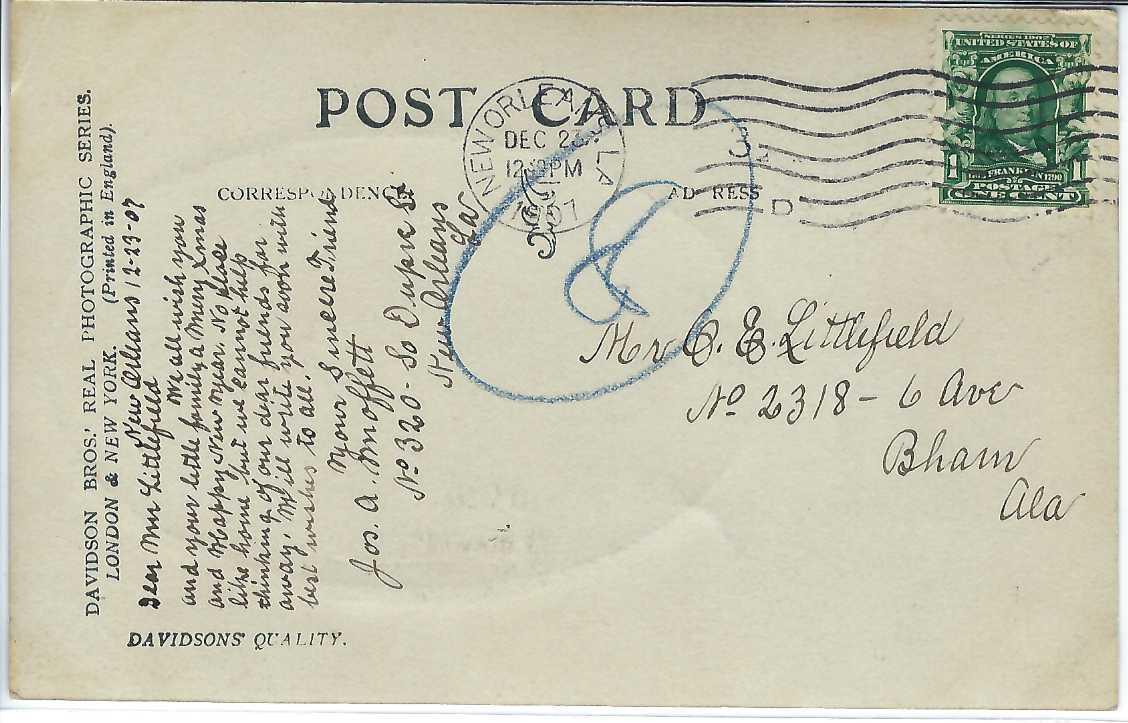 POST CARD
CORRESPONDENCE
ADDRESS
NEW ORLEANS, LA
DEC 23
PM
1907
SERIES 1902
UNITED STATES OF
AMERICA
FRANKLIN 1790
1 1
POSTAGE
ONE CENT
D
8
Mr E. Littlefield
No 2318 - 6 Ave
Bham
Ala
DAVIDSON BROS.' REAL PHOTOGRAPHIC SERIES.
LONDON & NEW YORK. (Printed in England).
New Orleans 12-23-07
Dear Littlefield
We all wish you
and your little family a Merry Xmas
and Happy New Year. No place
like home but we cannot help
thinking of our dear friends far
away. Will write you soon with
best wishes to all.
Your Sincere Friend
Jos. A. Moffett
No 320 - So Dupre St
New Orleans
La
DAVIDSONS' QUALITY.